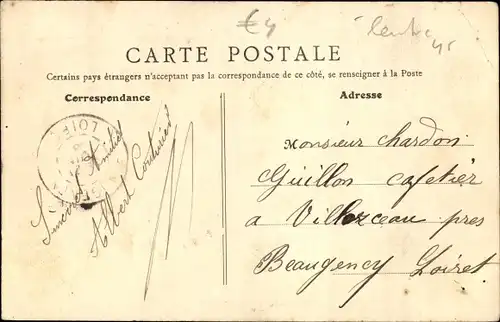 €4
CARTE POSTALE
Certains pays étrangers n'acceptant pas la correspondance de ce côté, se renseigner à la Poste
Correspondance
Adresse
LOIRET
Sincères Amitiés
Albert
Monsieur chardon
Guillon cafetier
a Villorceau pres
Beaugency Loiret